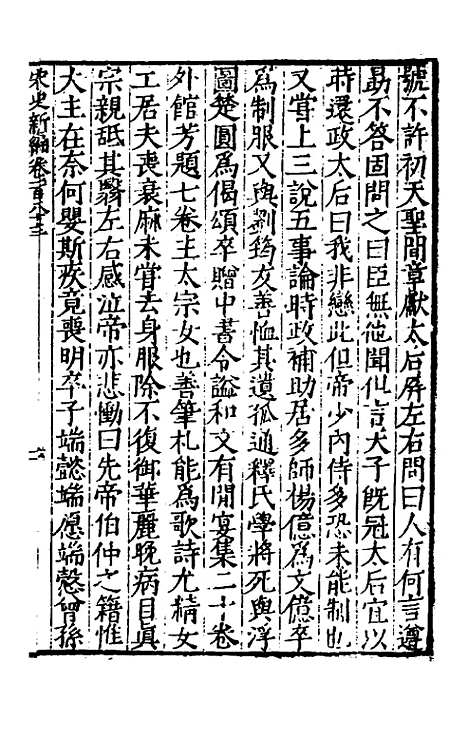 號不許初天聖間章獻太后屏左右問曰人有何言遵
勗不答固問之曰臣無他聞但言天子旣冠太后宜以
時還政太后曰我非戀此但帝少內侍多恐未能制也
又嘗上三說五事論時政補助居多師楊億爲文億卒
爲制服又與劉筠友善恤其遺孤通釋氏學將死與浮
圖楚圓爲偈頌卒贈中書令謚和文有閒宴集二十卷
外館芳題七卷主太宗女也善筆札能爲歌詩尤精女
工居夫喪衰麻未嘗去身服除不復御華麗晚病目眞
宗親舐其翳左右感泣帝亦悲慟曰先帝伯仲之籍惟
大主在奈何嬰斯疾竟喪明卒子端懿端愿端慤曾孫
宋史新編卷一百八十三